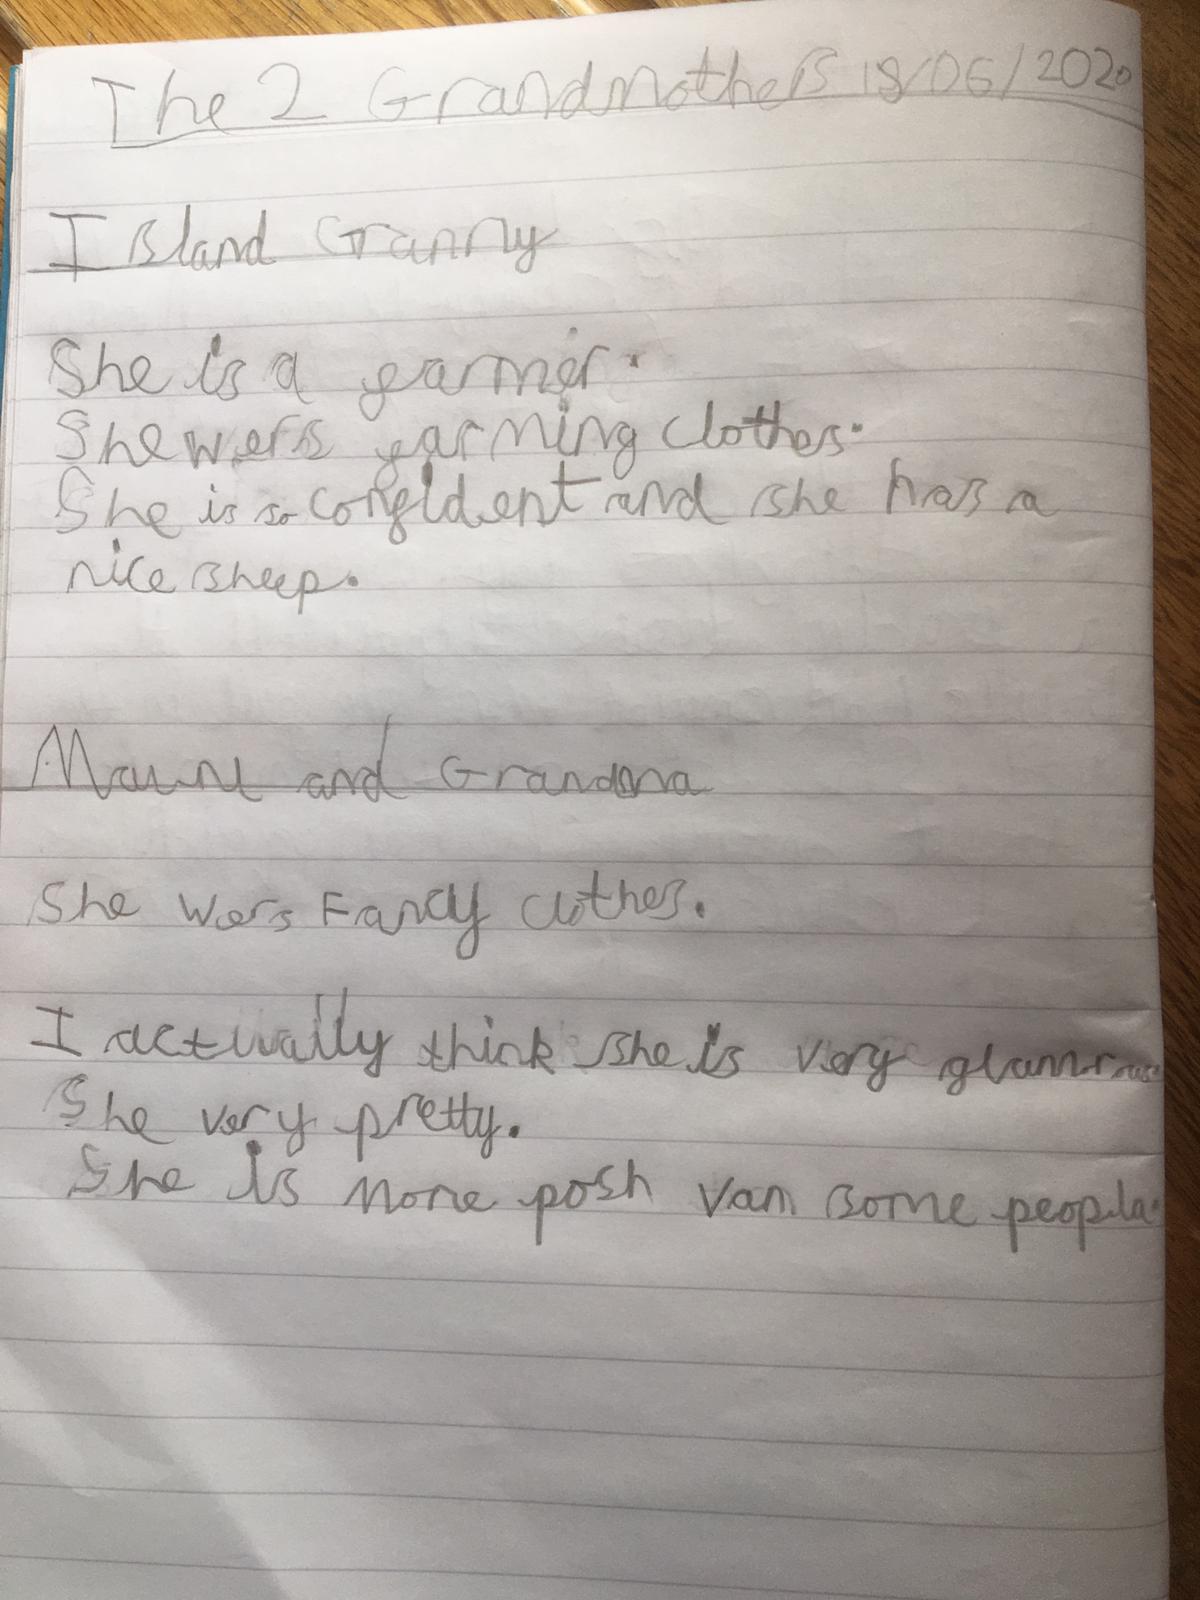 The 2 Grandmothers 18/06/2020
Island Granny
She is a farmer.
She wers farming clothes.
She is so confident and she has a
nice sheep.
and Grandma
She wers Fancy clothes.
I actually think she is very
She very pretty.
She is more posh van some people.